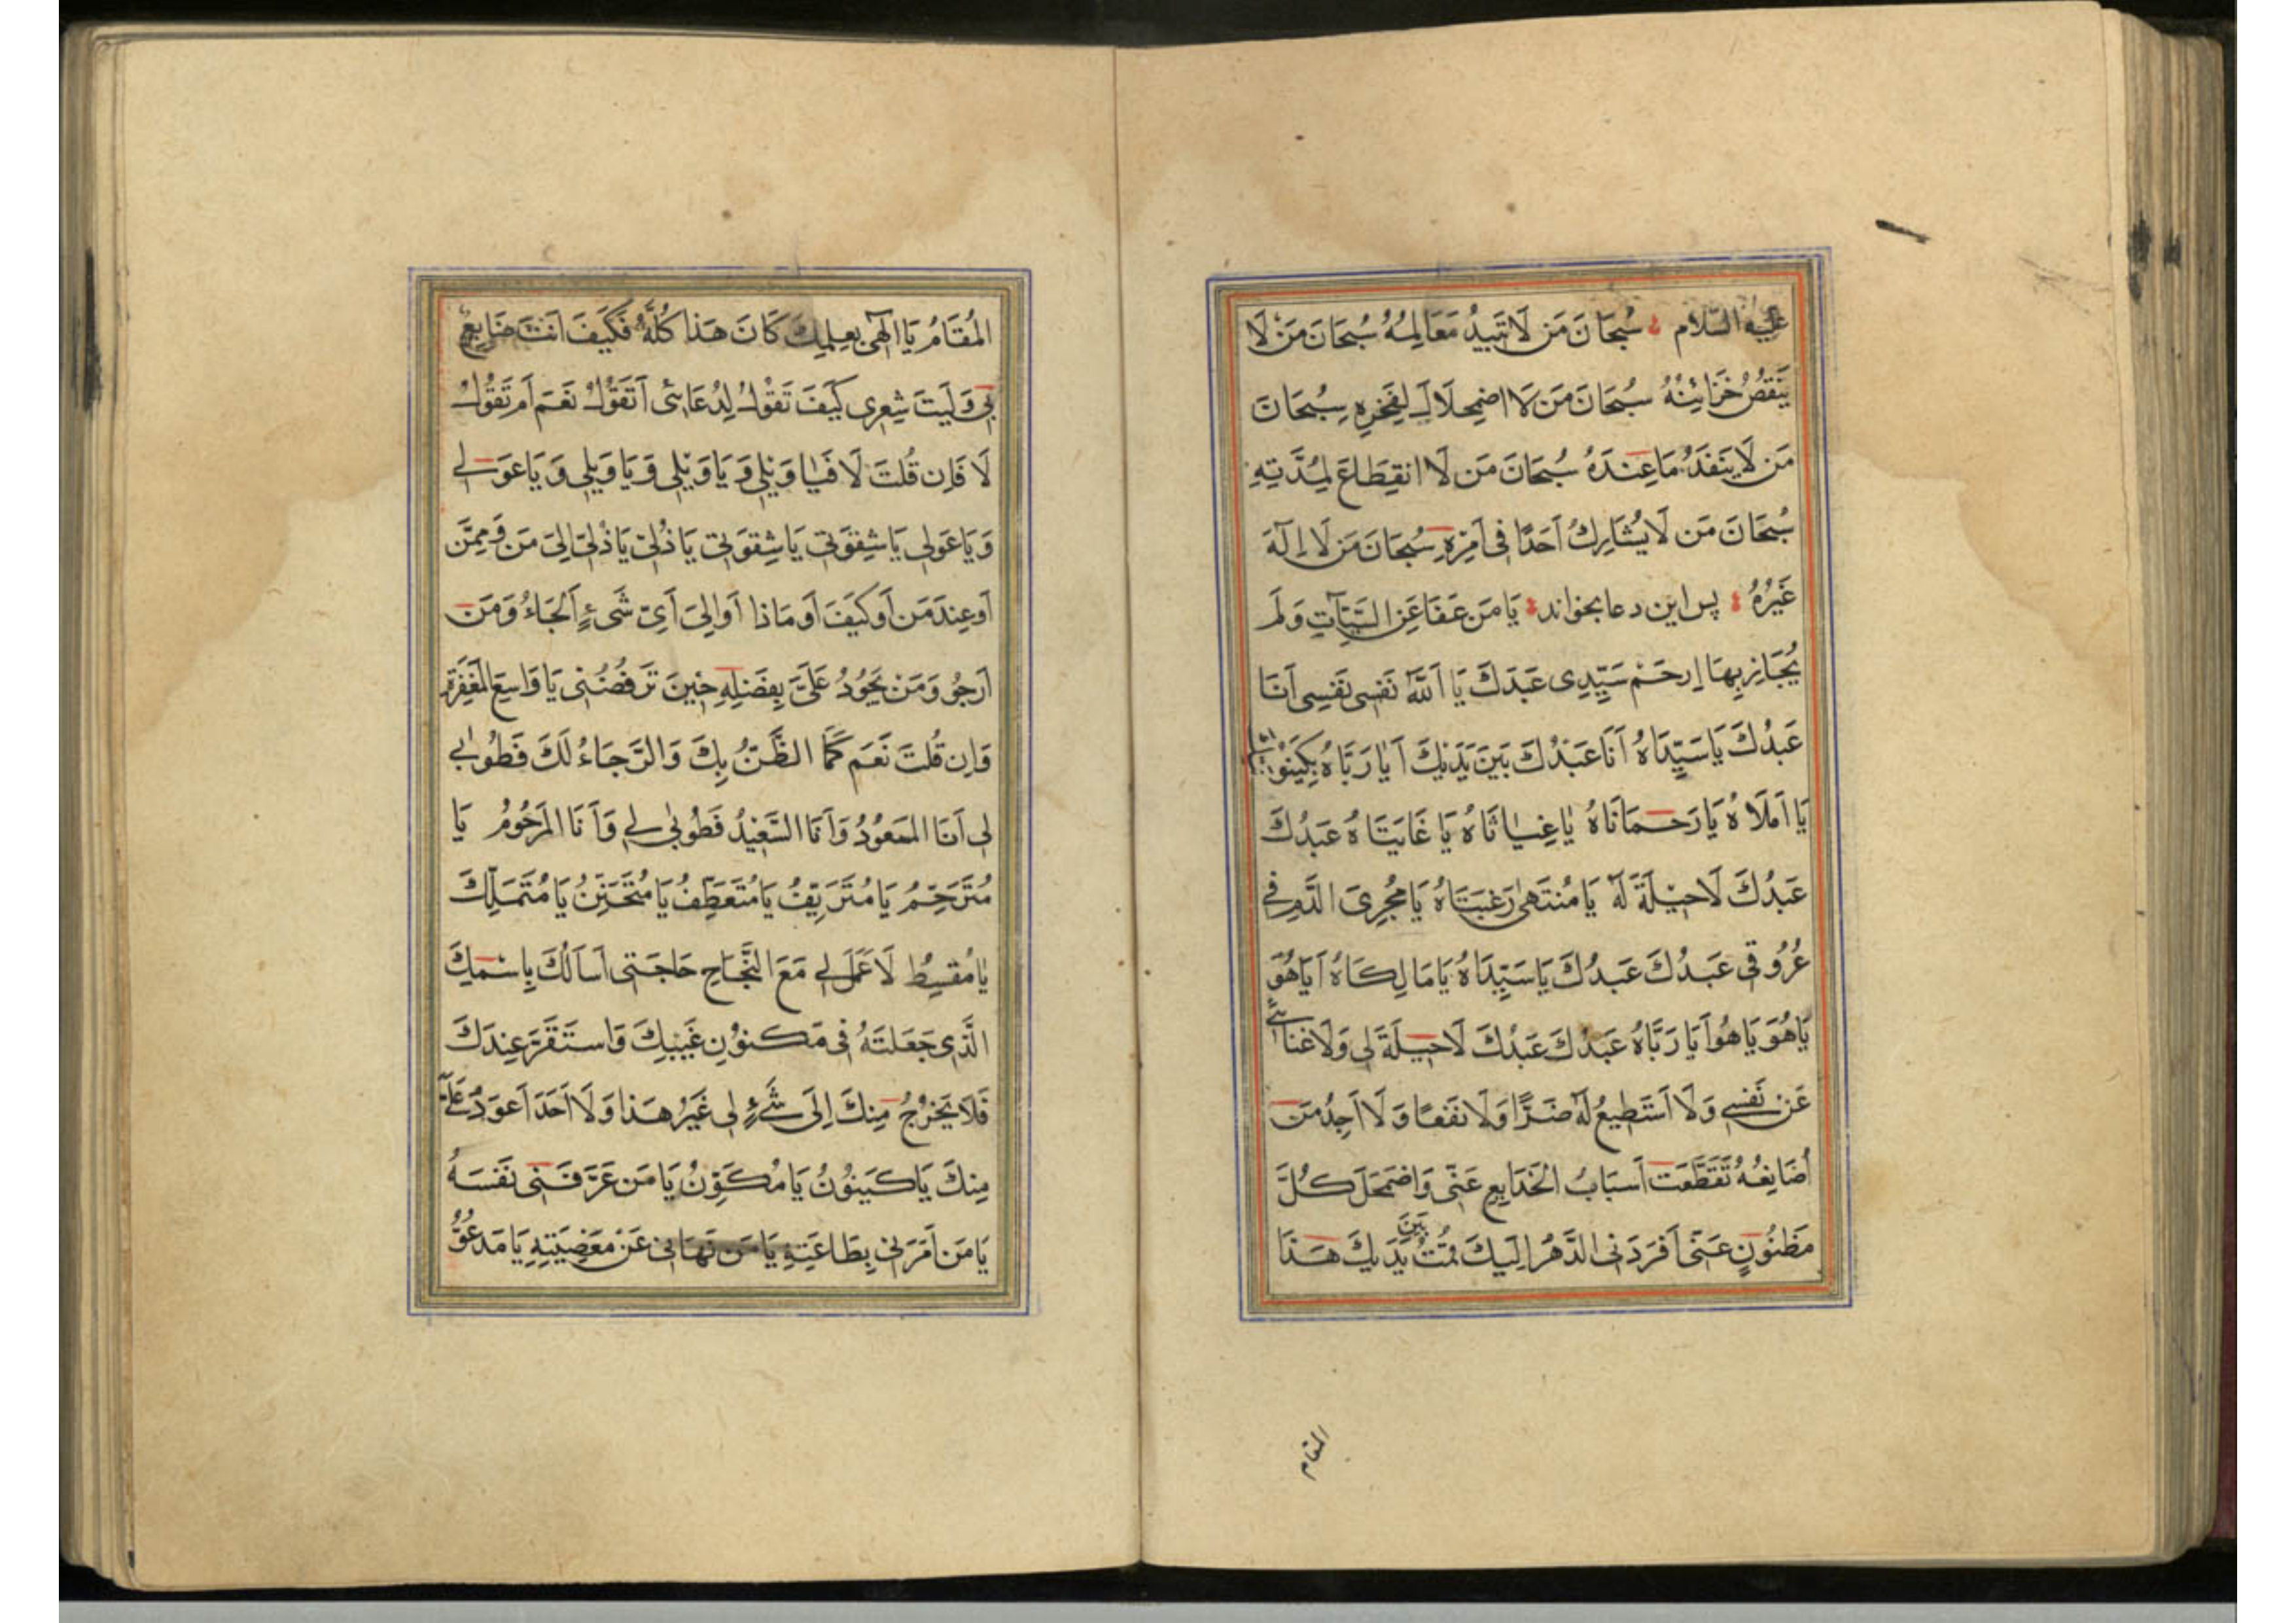 عَلَيْهِ السَّلَام سُبْحَانَ مَن لَا تَبِيدُ مَعَالِمُهُ سُبْحَانَ مَنْ لَا
يَنقُصُ خَزَائِنُهُ سُبْحَانَ مَن لَا اضمِحلَالَ لِفَخرِهِ سُبْحَانَ
مَن لَا يَنفَدُ مَا عِندَهُ سُبْحَانَ مَن لَا انقِطَاعَ لِمُدَّتِهِ
سُبْحَانَ مَن لَا يُشَارِكُ اَحَدًا فى اَمْرِهِ سُبْحَانَ مَن لَا اِلٰهَ
غَيْرُهُ پس این دعا بخواند يَا مَن عَفَا عَنِ السَّيِّآتِ وَلَم
يُجَازِ بِهَا اِرحَمْ سَيِّدِى عَبدَكَ يَا اَللّٰهُ نَفسِى نَفسِى اَنَا
عَبدُكَ يَا سَيِّدَاهُ اَنَا عَبدُكَ بَينَ يَدَيْكَ اَيَا رَبَّاهُ بِكَينُو
يَا اَمَلَاهُ يَا رَحمَانَاهُ يَا غِيَاثَاهُ يَا غَايَتَاهُ عَبدُكَ
عَبدُكَ لَا حِيْلَةَ لَهٗ يَا مُنتَهٰى رَغبَتَاهُ يَا مُجرِىَ الدَّمِ فى
عُرُوقى عَبدُكَ عَبدُكَ يَا سَيِّدَاهُ يَا مَالِكَاهُ اَيَا هُوَ
يَا هُوَ يَا هُو اَيَا رَبَّاهُ عَبدُكَ عَبدُكَ لَا حِيلَةَ لِى وَلَا غِنَا بى
عَن نَفسِى وَلَا اَستَطِيعُ لَهٗ ضَرًّا وَلَا نَفعًا وَلَا اَجِدُ مَن
اُصَانِعُهُ تَقَطَّعَت اَسبَابُ الخَدَايِعِ عَنّى وَاضمَحَلَ كُلَّ
مَظنُونٍ عَنّى اَفرَدَنِى الدَّهرُ اِلَيكَ قُمتُ بَينَ يَدَيكَ هَذَا
المقام
المُقَامُ يَا اِلٰهِى بِعِلمِكَ كَانَ هَذَا كُلُّهُ فَكَيفَ اَنتَ صَانِعٌ
بى وَلَيتَ شِعرِى كَيفَ تَقُولُ لِدُعَائى اَتَقُولُ نَعَم اَم تَقُولُ
لَا فَاِن قُلتَ لَا فَيَا وَيْلِى وَيَا وَيْلِى وَيَا وَيلِى وَيَا عَولى
وَيَا عَولِى يَا شِقوَتى يَا شِقوَتى يَا ذُلّى يَا ذُلّى اِلىَ مَن وَمِمَّن
اَو عِندَ مَن اَو كَيفَ اَو مَاذا اَو اِلىَ اَىِّ شَىءٍ اَلجَاءُ وَمَن
اَرجُو وَمَن يَجُودُ عَلَىَّ بِفَضلِهِ حِينَ تَرفُضُنِى يَا وَاسِعَ المَغفِرَةِ
وَاِن قُلتَ نَعَم كَمَا الظَّنُّ بِكَ وَالرَّجَاءُ لَكَ فَطُوبٰى
لِى اَنَا المَسعُودُ وَاَنَا السَّعِيدُ فَطُوبٰى لى وَاَنَا المَرحُومُ يَا
مُتَرَحِّمُ يَا مُتَرَئِّفُ يَا مُتَعَطِّفُ يَا مُتَحَنِّنُ يَا مُتَمَلِّكُ
يَا مُقسِطُ لَا عَمَلَ لى مَعَ النَّجَاحِ حَاجَتى اَساَلُكَ بِاسمِكَ
الَّذِى جَعَلتَهُ فى مَكنُونِ غَيبِكَ وَاستَقَرَّ عِندَكَ
فَلَا يَخرُجُ مِنكَ اِلىَ شَىءٍ لِى غَيرُ هَذا وَلَا اَحَدَ اَعوَدُ عَلَىَّ
مِنكَ يَا كَينُونُ يَا مُكَوِّنُ يَا مَن عَرَّفَنى نَفسَهُ
يَا مَن اَمَرَنى بِطَاعَتِهِ يَا مَن نَهَانى عَن مَعصِيَتِهِ يَا مَدعُوُّ